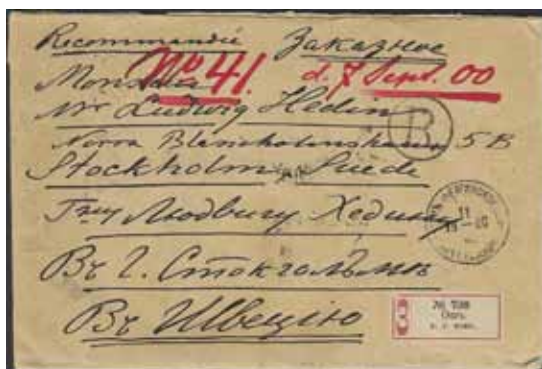 Recommandée Заказное
Monsieur № 41. d. 7 Sept. 00
Mr Ludwig Hedin
Norra Blasieholmshamn 5 B
Stockholm Suède
Гну Людвигу Хедину
Въ Г. Стокгольмъ
Въ Швецію
R
11
З
№ 708
Ошъ.